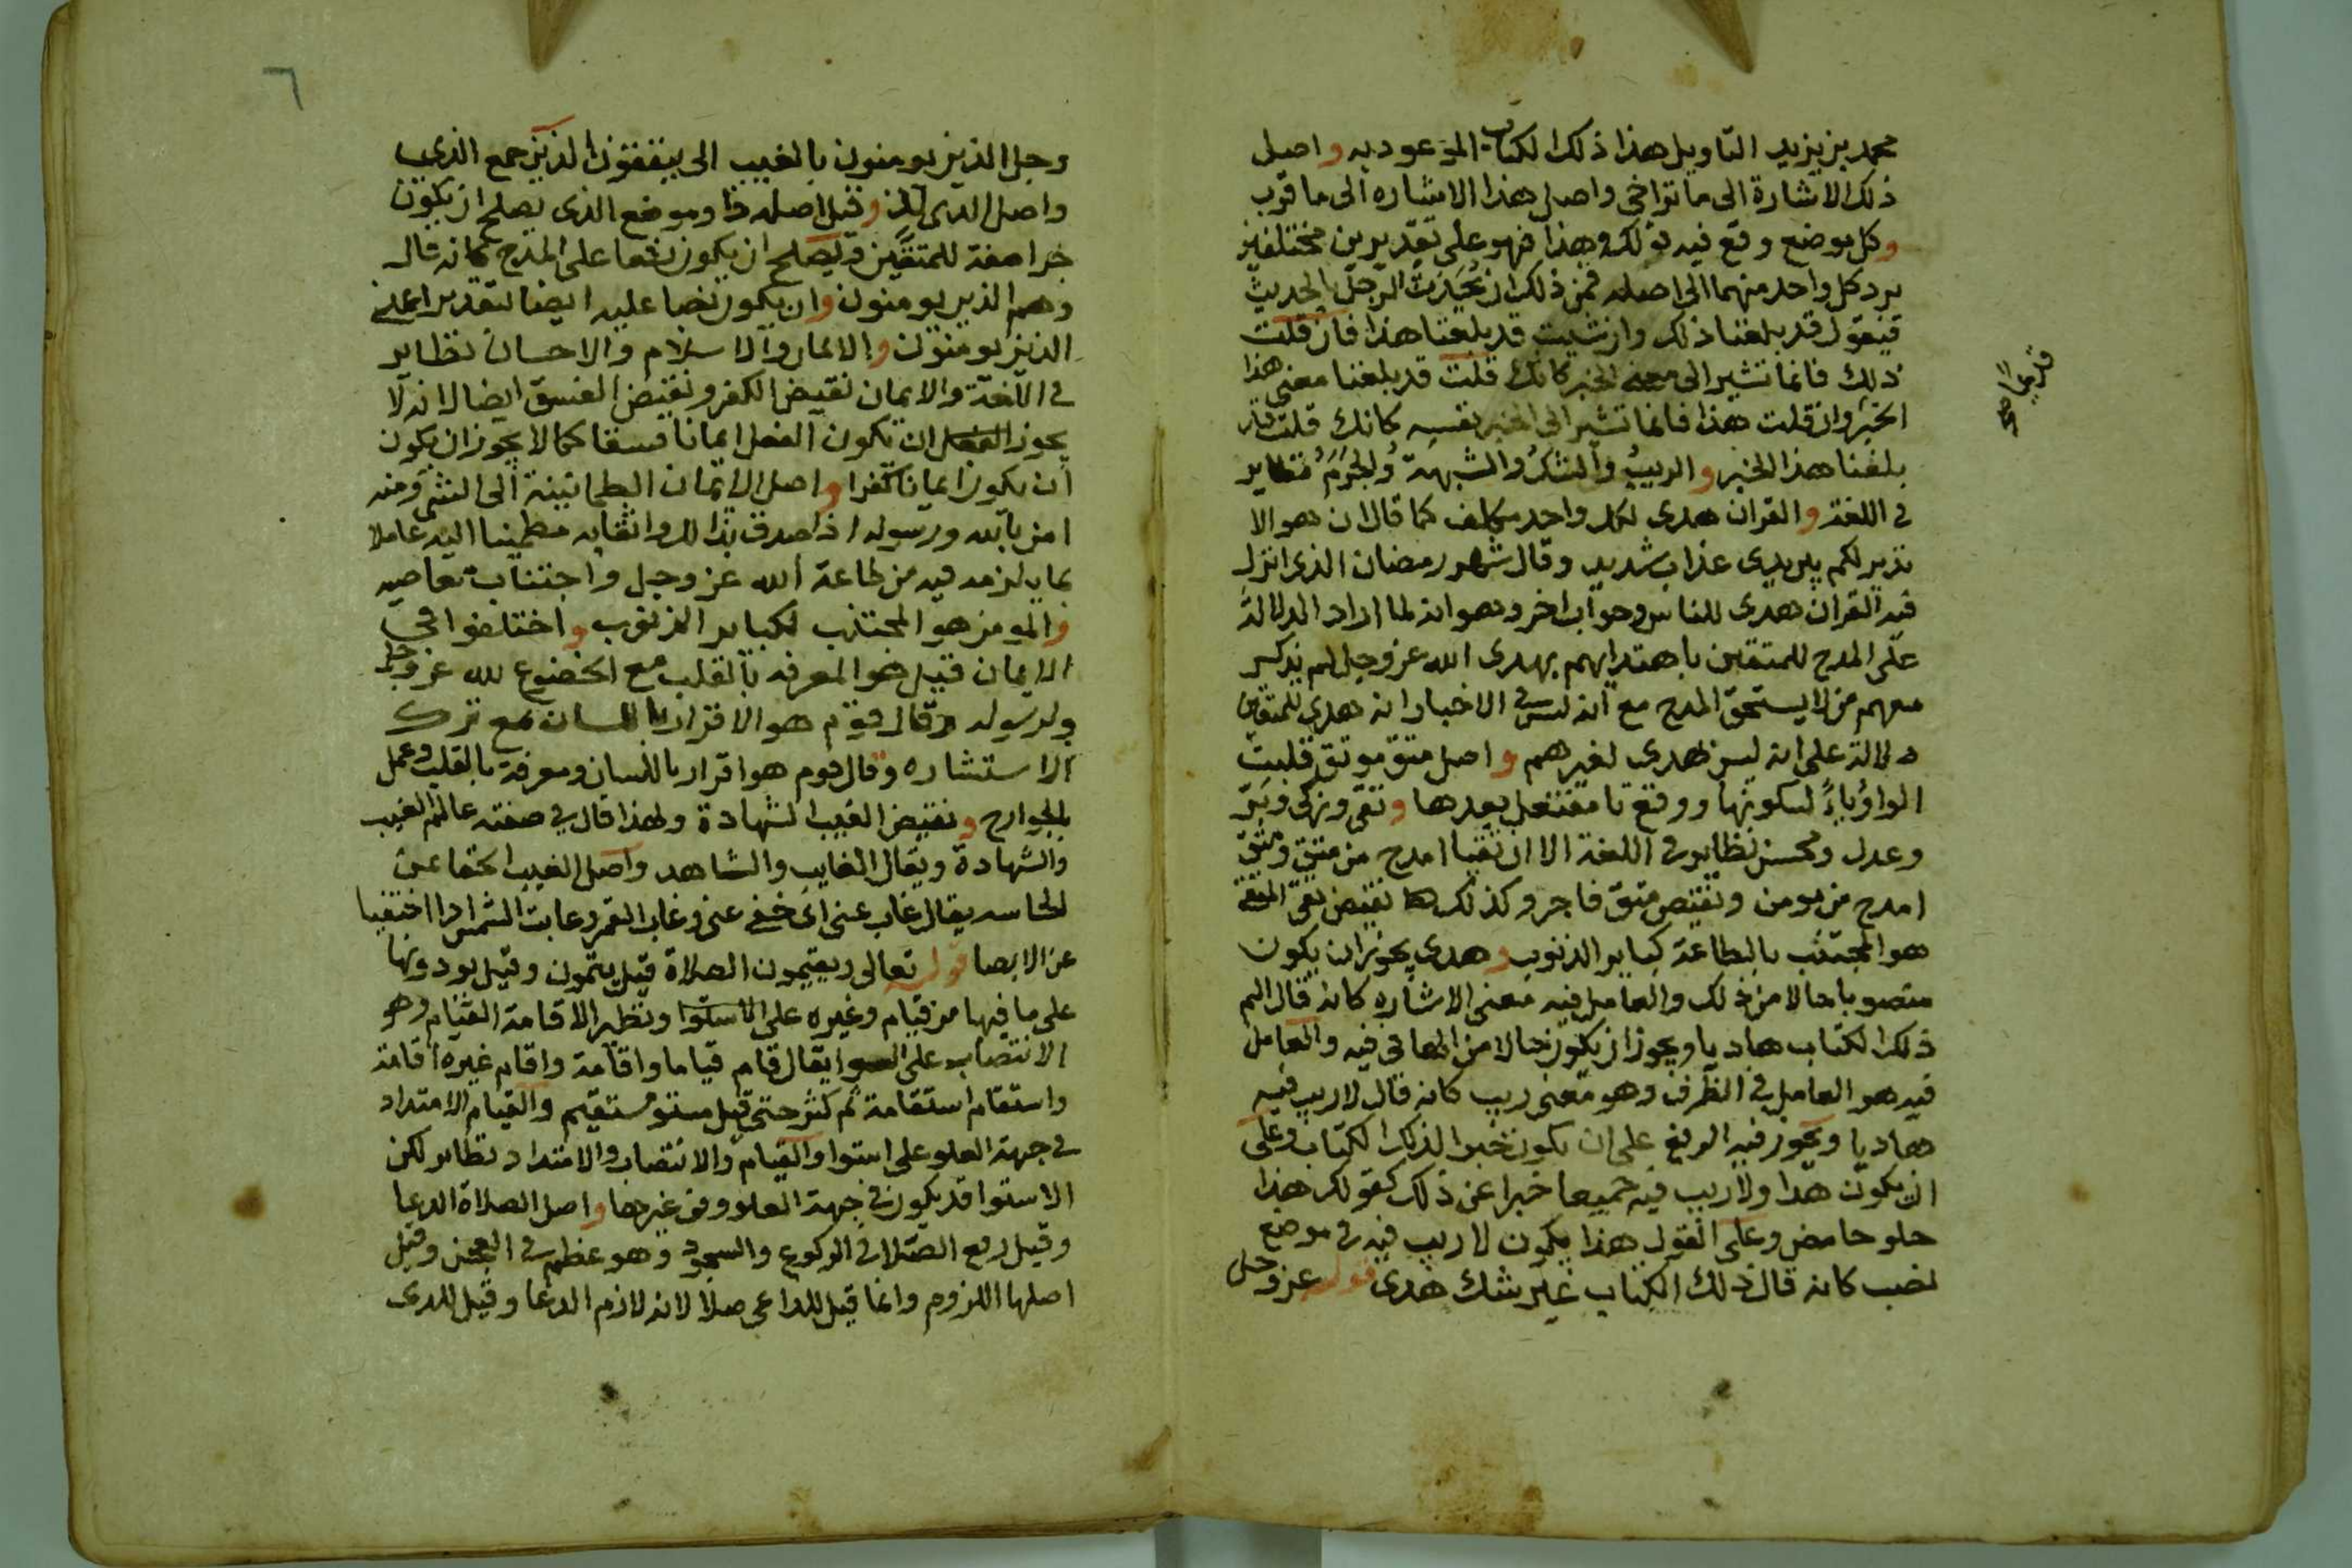 محمد بن يزيد التاويل هذا ذلك الكتاب الموعود به واصل
ذلك الاشارة الى ما تراخى واصل هذا الاشاره الى ما قرب
وكل موضع وقع فيه ذلك وهذا فهو على تقديرين مختلفين
يرد كل واحد منهما الى اصله فمن ذلك ان يحدث الرجل بالحديث
فيقول قد بلغنا ذلك وان شيت قد بلغنا هذا فان قلت
ذلك فانما تشير الى معنى الخبر كانك قلت قد بلغنا معنى هذا
الخبر وان قلت هذا فانما تشير الى الخبر نفسه كانك قلت قد
بلغنا هذا الخبر والريب والشك والشبهة نظاير
في اللغة والقران هدى لكل واحد مكلف كما قال ان هو الا
نذير لكم بين يدى عذاب شديد وقال شهر رمضان الذى انزل
فيه القران هدى للناس وجواب اخر وهو انه لما اراد الدلالة
على المدح للمتقين باهتدايهم بهدى الله عز وجل لم يذكر
معهم من لا يستحق المدح مع انه ليس في الاخبار انه هدى للمتقين
دلالة على انه ليس بهدى لغيرهم واصل متق موتق قلبت
الواو ياءً لسكونها ووقع تا مفتعل بعدها وتقى وزكى وبر
وعدل ومحسن نظاير في اللغة الا ان تقيا امدح من متق ومتق
امدح من مومن ونقيض متق فاجر وكذلك نقيض تقى المتقى
هو المجتنب بالطاعة كباير الذنوب وهدى يجوز ان يكون
منصوبا حالا من ذلك والعامل فيه معنى الاشاره كانه قال الم
ذلك الكتاب هاديا ويجوز ان يكون حالا من الها في فيه والعامل
فيه هو العامل في الظرف وهو معنى ريب كانه قال لا ريب فيه
هاديا ويجوز فيه الرفع على ان يكون خبرا لذلك الكتاب وعلى
ان يكون هدا ولا ريب فيه جميعا خبرا عن ذلك كقولك هذا
حلو حامض وعلى القول هذا يكون لا ريب فيه في موضع
نصب كانه قال ذلك الكتاب غير شك هدى قوله عز وجل
٦
وجل الذين يومنون بالغيب الى ينفقون الذين جمع الذى
واصل الذى لذ وقيل اصله ذا وموضع الذى يصلح ان يكون
جرا صفة للمتقين ويصلح ان يكون رفعا على المدح كانه قال
وهم الذين يومنون وان يكون نصبا عليه ايضا لتقدير اعنى
الذين يومنون والايمان والاسلام والاحسان نظاير
في اللغة والايمان نقيض الكفر ونقيض الفسق ايضا لانه لا
يجوز ان يكون الفعل ايمانا فسقا كما لا يجوز ان يكون
ان يكون ايمانا كفرا واصل الايمان الطمانينة الى الشى ومنه
امن بالله ورسوله اذا صدق بذلك واثقا به مطمينا اليه عاملا
بما يلزمه فيه من طاعة الله عز وجل واجتناب معاصيه
والمومن هو المجتنب لكباير الذنوب واختلفوا في
الايمان فقيل هو المعرفه بالقلب مع الخضوع لله عز وجل
ولرسوله وقال قوم هو الاقرار باللسان مع ترك
الاستشاره وقال قوم هو اقرار باللسان ومعرفة بالقلب وعمل
بالجوارح ونقيض الغيب الشهادة ولهذا قال في صفته عالم الغيب
والشهادة ويقال الغايب والشاهد واصل الغيب الخفا عن
الحاسه يقال غاب عنى اى خفى عنى وغاب القمر وغابت الشمس اذا اختفيا
عن الابصا قوله تعالى ويقيمون الصلاة قيل يتمون وقيل يودونها
على ما فيها من قيام وغيره على الاستوا ونظير الاقامة القيام وهو
الانتصاب على السوا يقال قام قياما واقامة واقام غيره اقامة
واستقام استقامة ثم كثر حتى قيل مستو مستقيم والقيام الامتداد
في جهة العلو على استوا والقيام والانتصاب والامتداد نظاير لكن
الاستوا قد يكون في جهة العلو وفي غيرها واصل الصلاة الدعا
وقيل رفع الصلا في الركوع والسجود وهو عظم في العجز وقيل
اصلها اللزوم وانما قيل للداعى صلا لانه لازم الدعا وقيل للذى